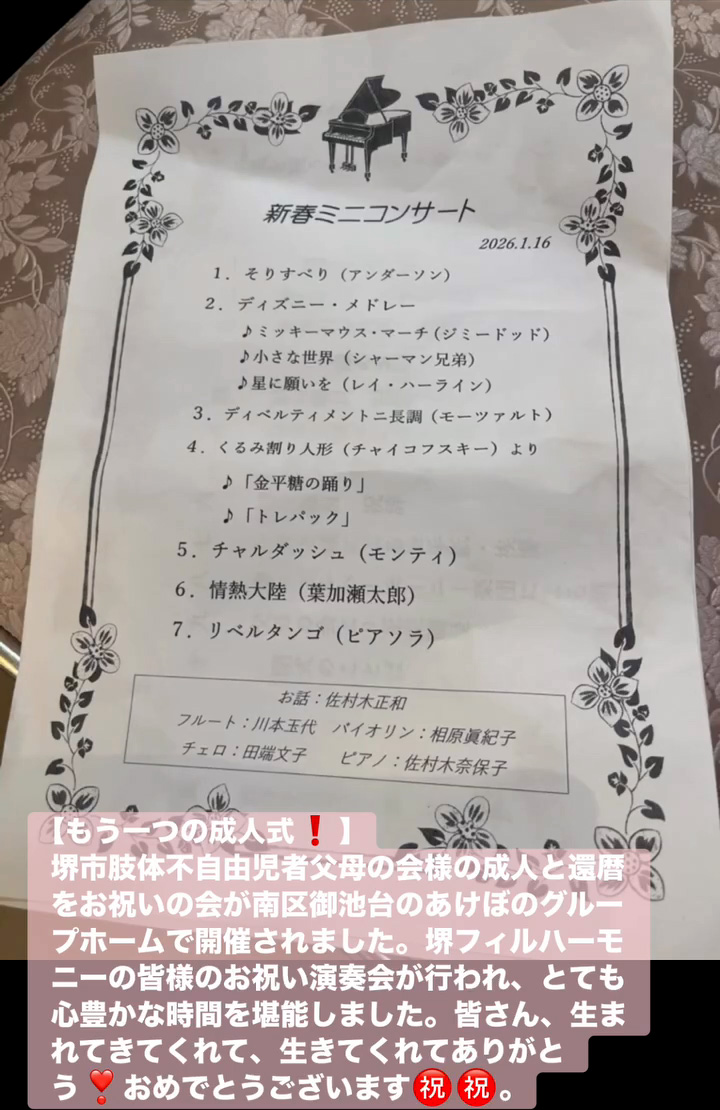 新春ミニコンサート
2026.1.16
1. そりすべり（アンダーソン）
2. ディズニー・メドレー
♪ミッキーマウス・マーチ（ジミードッド）
♪小さな世界（シャーマン兄弟）
♪星に願いを（レイ・ハーライン）
3. ディベルティメントニ長調（モーツァルト）
4. くるみ割り人形（チャイコフスキー）より
♪「金平糖の踊り」
♪「トレパック」
5. チャルダッシュ（モンティ）
6. 情熱大陸（葉加瀬太郎）
7. リベルタンゴ（ピアソラ）
お話：佐村木正和
フルート：川本玉代　バイオリン：相原眞紀子
チェロ：田端文子　ピアノ：佐村木奈保子
【もう一つの成人式❗】
堺市肢体不自由児者父母の会様の成人と還暦
をお祝いの会が南区御池台のあけぼのグルー
プホームで開催されました。堺フィルハーモ
ニーの皆様のお祝い演奏会が行われ、とても
心豊かな時間を堪能しました。皆さん、生ま
れてきてくれて、生きてくれてありがと
う❣️おめでとうございます㊗️㊗️。